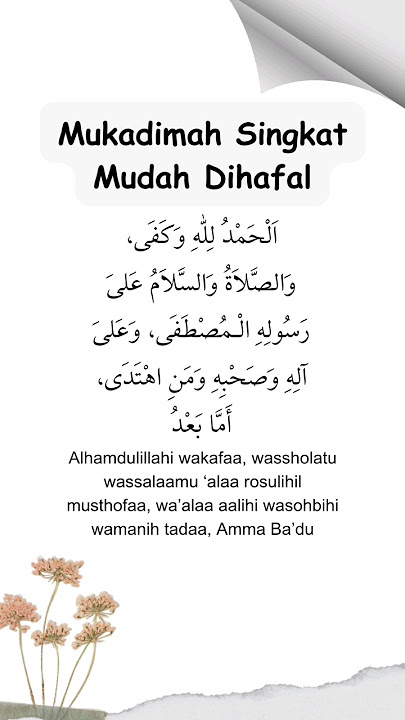 Mukadimah Singkat
Mudah Dihafal
اَلْحَمْدُ لِلّٰهِ وَكَفَى،
وَالصَّلَاةُ وَالسَّلَامُ عَلىَ
رَسُولِهِ الْـمُصْطَفَى، وَعَلىَ
آلِهِ وَصَحْبِهِ وَمَنِ اهْتَدَى،
أَمَّا بَعْدُ
Alhamdulillahi wakafaa, wassholatu
wassalaamu ‘alaa rosulihil
musthofaa, wa’alaa aalihi wasohbihi
wamanih tadaa, Amma Ba’du